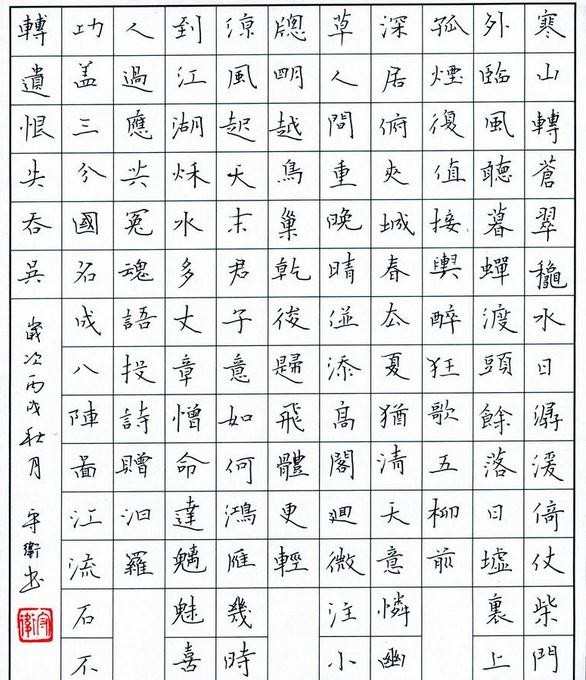 寒山轉蒼翠龝水日潺湲倚仗柴門
外臨風聽暮蟬渡頭餘落日墟裏上
孤煙復值接輿醉狂歌五柳前
深居俯夾城春去夏猶清天意憐幽
草人間重晚晴並添高閣迥微注小
牕朙越鳥巢乾後歸飛體更輕
涼風起天末君子意如何鴻雁幾時
到江湖秌水多文章憎命達魑魅喜
人過應共冤魂語投詩贈汨羅
功盖三分國名成八陣啚江流石不
轉遺恨失吞吳
歲次丙戌秋月 守衛书